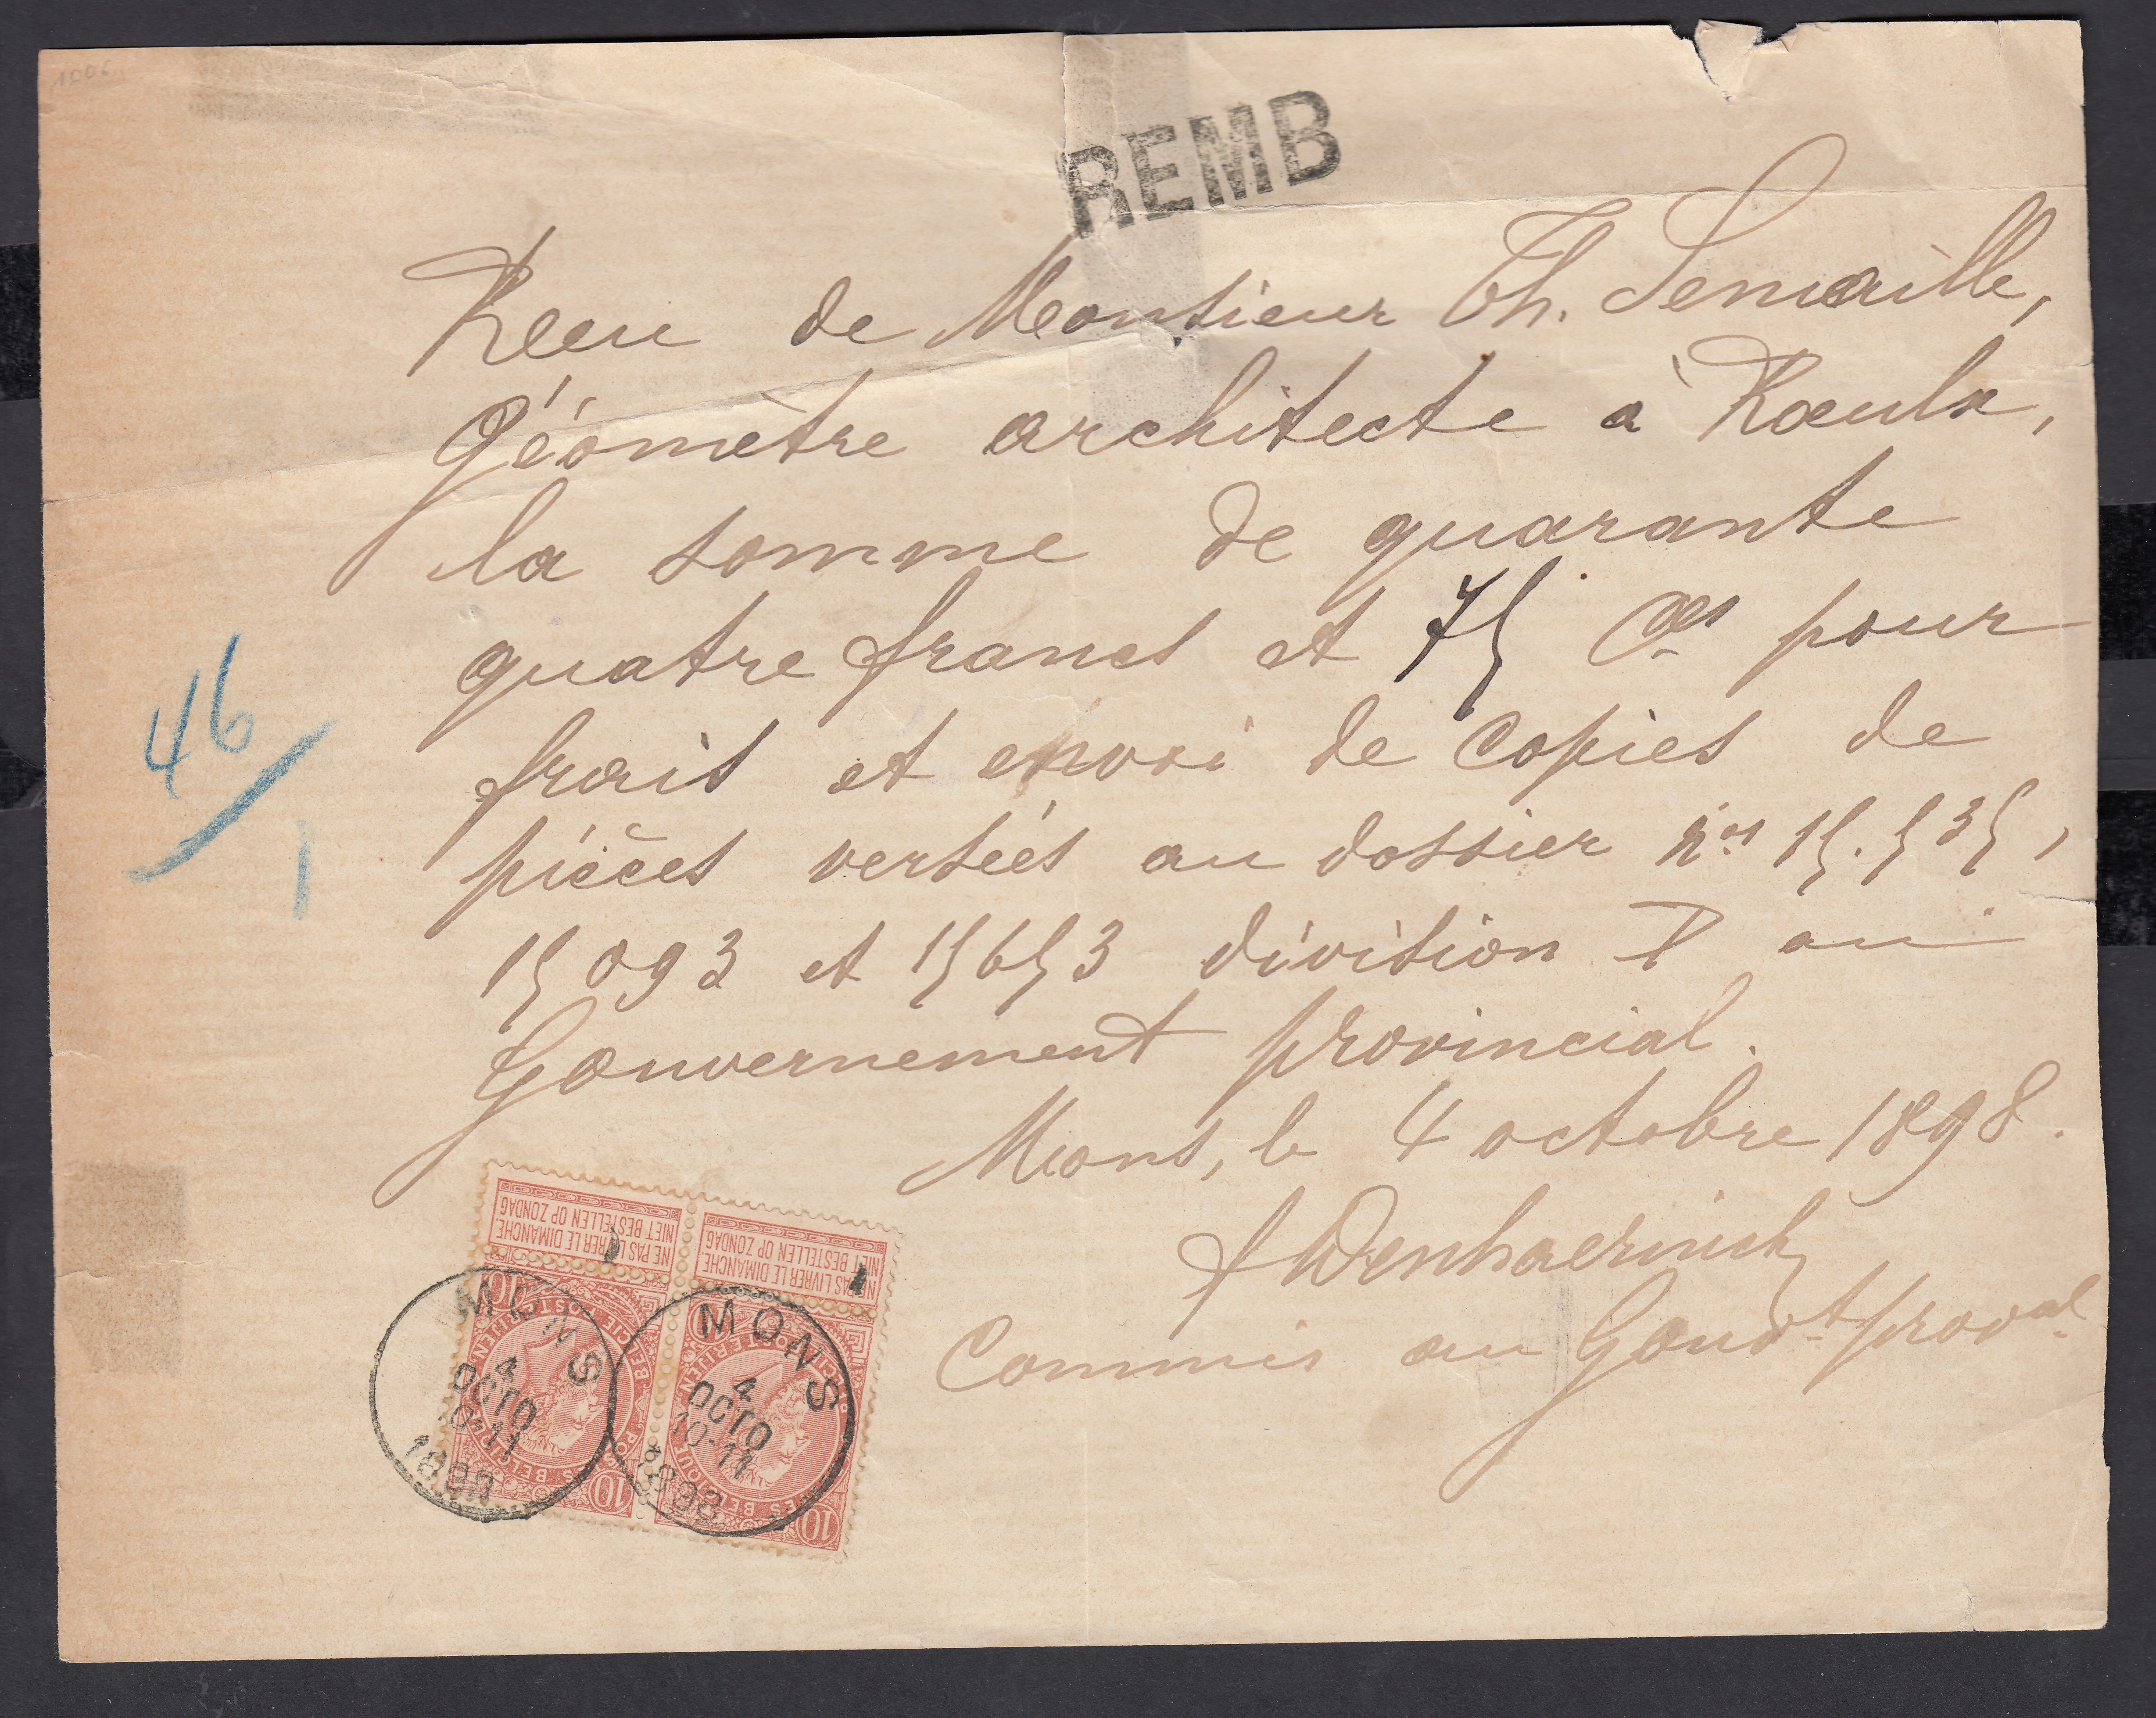 1006
REMB
Recu de Monsieur Th. Semaille,
Géomètre architecte à Roeulx,
la somme de quarante
quatre francs et 75 Ces pour
frais et envoi de copies de
pièces versées au dossier nos 15.535,
15093 et 15653 division I au
Gouvernement provincial.
Mons, le 4 octobre 1898.
Commis au Gouvt proval
46
1
NE PAS LIVRER LE DIMANCHE
NIET BESTELLEN OP ZONDAG
NE PAS LIVRER LE DIMANCHE
NIET BESTELLEN OP ZONDAG
10
10
10
10
MONS
4
OCTO
10-11
1898
MONS
4
OCTO
10-11
1898